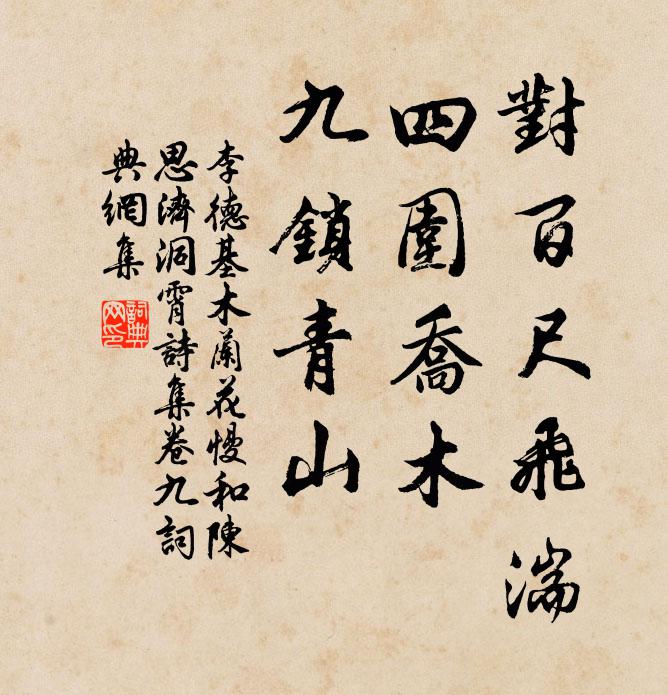 對百尺飛湍
四圍喬木
九鎖青山
李德基木蘭花慢和陳
思濟洞霄詩集卷九詞
典網集
詞典網印